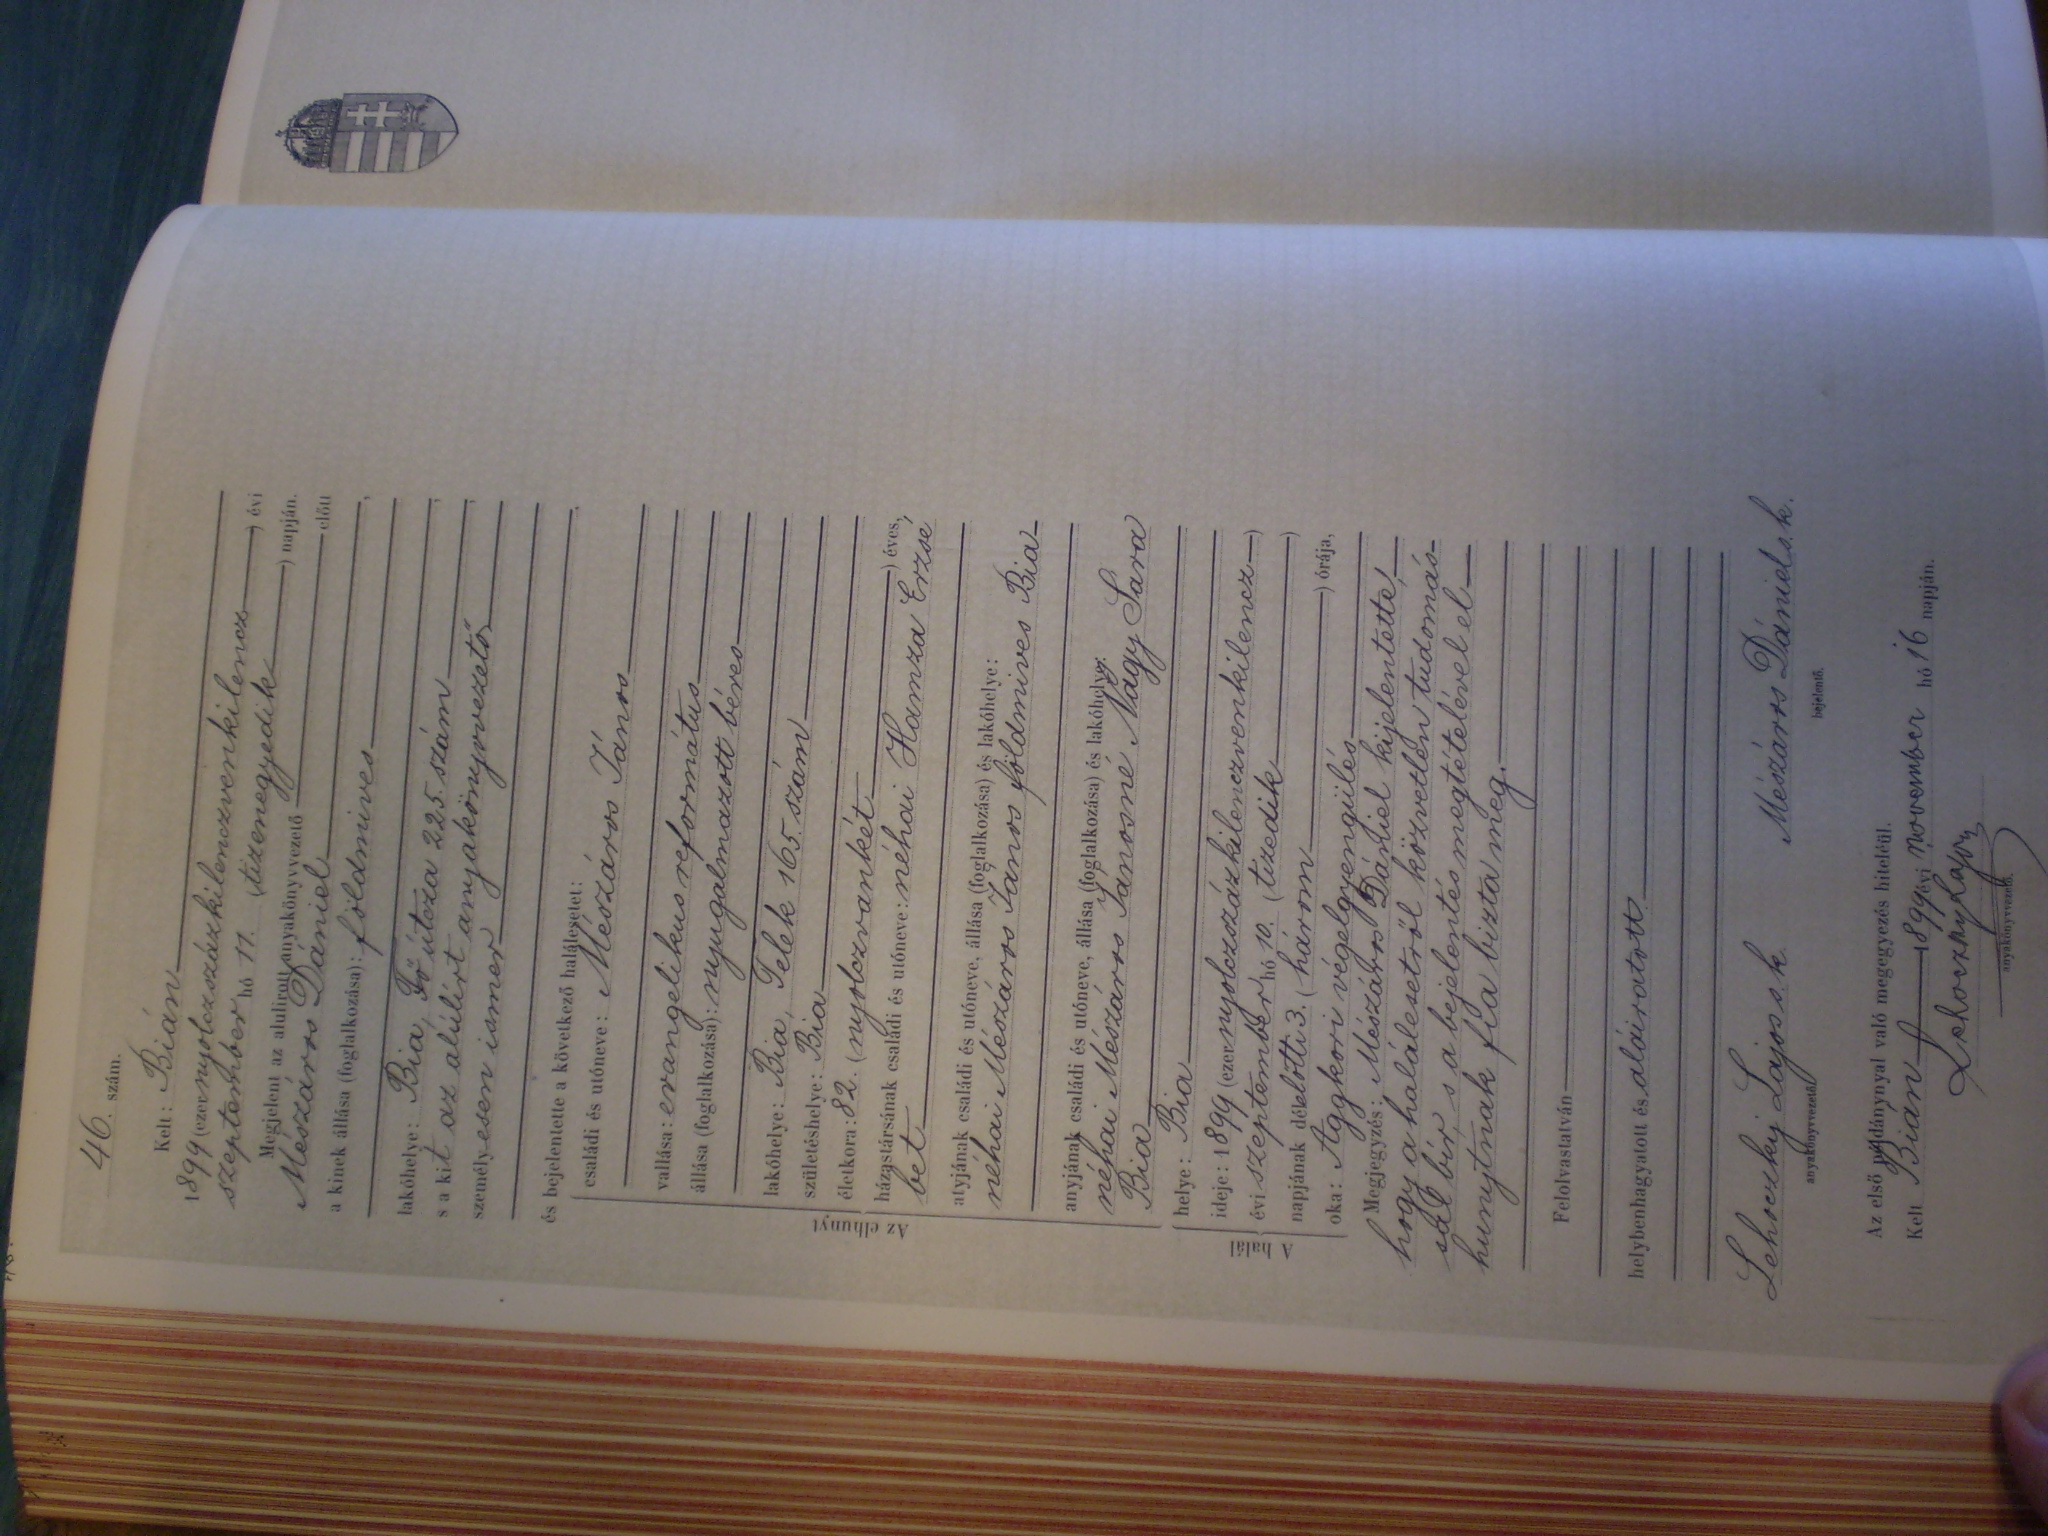 46. szám.
Kelt: Bián
1899 (ezernyolczszázkilenczvenkilencz) évi
szeptember hó 11. (tizenegyedik) napján.
Megjelent az alulirott anyakönyvvezető előtt
Mészáros Dániel
a kinek állása (foglalkozása): földmives,
lakóhelye: Bia, Fő útcza 225. szám,
s a kit az alúlírt anyakönyvvezető,
személyesen ismer
és bejelentette a következő halálesetet:
családi és utóneve: Mészáros János
vallása: evangelikus református
állása (foglalkozása): nyugalmazott béres
lakóhelye: Bia, Telek 165. szám
születéshelye: Bia
életkora: 82. (nyolczvankét) éves,
házastársának családi és utóneve: néhai Hamza Erzsé
bet
atyjának családi és utóneve, állása (foglalkozása) és lakóhelye:
néhai Mészáros János földmives Bia
anyjának családi és utóneve, állása (foglalkozása) és lakóhelye:
néhai Mészáros Jánosné Nagy Sara
Bia
Az elhunyt
helye: Bia
ideje: 1899 (ezernyolczszázkilenczvenkilencz)
évi szeptember hó 10. (tizedik)
napjának délelőtti 3. (három) órája,
oka: Aggkori végelgyengülés
A halál
Megjegyzés: Mészáros Dániel kijelentette,
hogy a halálesetről közvetlen tudomás-
sal bír, s a bejelentés megtételével el-
hunytnak fia bizta meg.
Felolvastatván
helybenhagyatott és aláiratott
Lehoczky Lajos s. k. Mészáros Dániel s. k.
anyakönyvvezető. bejelentő.
Az első példánynyal való megegyezés hiteléül.
Kelt Bián 1899 évi november hó 16 napján.
Lehoczky Lajos
anyakönyvvezető.